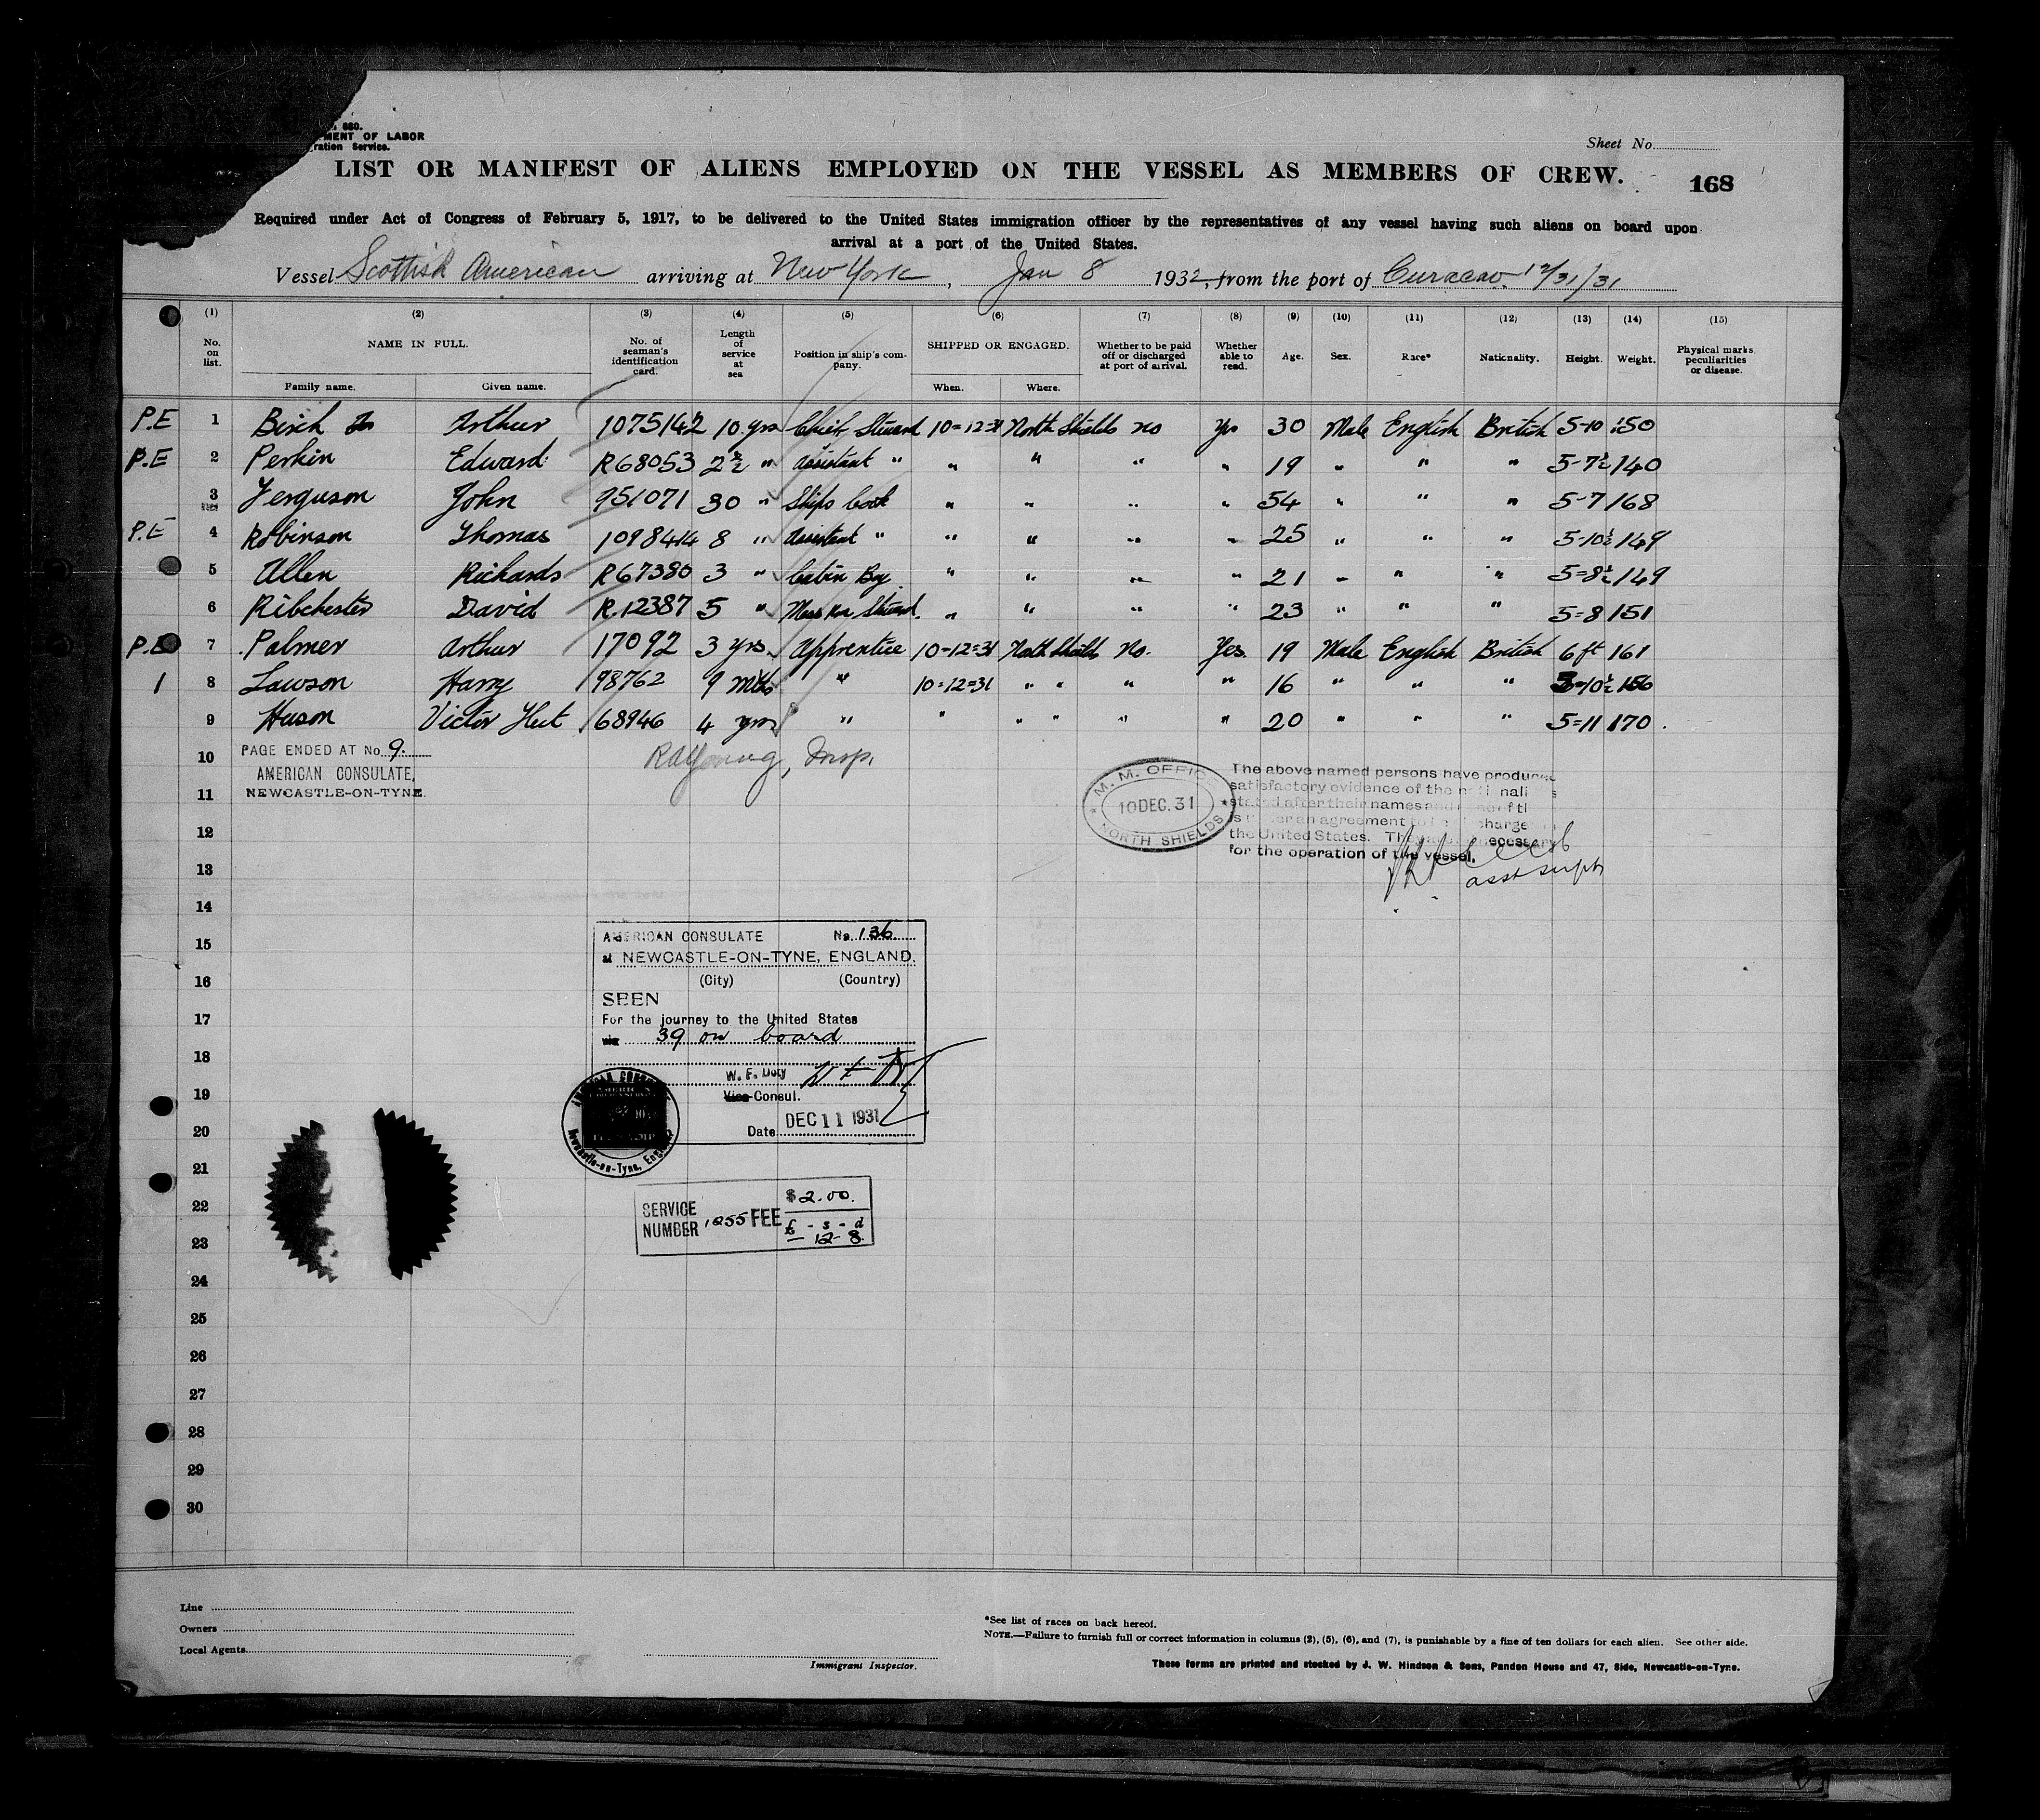 680.
MENT OF LABOR
ration Service.
Sheet No.
LIST OR MANIFEST OF ALIENS EMPLOYED ON THE VESSEL AS MEMBERS OF CREW.
168
Required under Act of Congress of February 5, 1917, to be delivered to the United States immigration officer by the representatives of any vessel having such aliens on board upon
arrival at a port of the United States.
Vessel Scottish American arriving at New York, Jan 8 1932, from the port of Curacao 12/31/31
(1) (2) (3) (4) (5) (6) (7) (8) (9) (10) (11) (12) (13) (14) (15)
No. on list. NAME IN FULL. Family name. Given name. No. of seaman's identification card. Length of service at sea Position in ship's company. SHIPPED OR ENGAGED. When. Where. Whether to be paid off or discharged at port of arrival. Whether able to read. Age. Sex. Race* Nationality. Height. Weight. Physical marks, peculiarities or disease.
P.E 1 Birch Arthur 1075142 10 yrs Chief Steward 10=12=31 North Shields no Yes 30 Male English British 5-10 150
P.E 2 Perkin Edward R68053 2½ " Assistant " " " " " 19 " " " 5-7½ 140
3 Ferguson John 951071 30 " Ships Cook " " " " 54 " " " 5-7 168
P.E 4 Robinson Thomas 1098414 8 " Assistant " " " " " 25 " " " 5-10½ 149
5 Allen Richards R67380 3 " Cabin Boy " " " " 21 " " " 5=8½ 149
6 Ribchester David R.12387 5 " Mess Rm Steward " " " " 23 " " " 5=8 151
P.E 7 Palmer Arthur 17092 3 yrs. Apprentice 10-12=31 North Shields No. Yes. 19 Male English British 6 ft 161
1 8 Lawson Harry 98762 9 mths " 10=12=31 " " " " 16 " " " 5=10½ 156
9 Huson Victor Hut 68946 4 yrs " " " " " " 20 " " " 5=11 170
10 PAGE ENDED AT No. 9.
AMERICAN CONSULATE,
11 NEWCASTLE-ON-TYNE.
RA Young, Insp.
M. M. OFFICE
10 DEC. 31
NORTH SHIELDS
The above named persons have produced
satisfactory evidence of the
stated after their names and
an agreement to
the United States. necessary
for the operation of the vessel.
asst supt
12
13
14
15
16
17
18
19
20
21
22
23
24
25
26
27
28
29
30
AMERICAN CONSULATE No. 136
at NEWCASTLE-ON-TYNE, ENGLAND.
(City) (Country)
SEEN
For the journey to the United States
via 39 on board
W. F. Doty
Vice-Consul.
Date DEC 11 1931
AMERICAN CONSULATE
Newcastle-on-Tyne, England
SERVICE NUMBER 1255 FEE $2.00.
£ - s - d
— 12 - 8.
Line
Owners
Local Agents
Immigrant Inspector.
*See list of races on back hereof.
NOTE.—Failure to furnish full or correct information in columns (2), (5), (6), and (7), is punishable by a fine of ten dollars for each alien. See other side.
These forms are printed and stocked by J. W. Hindson & Sons, Pandon House and 47, Side, Newcastle-on-Tyne.